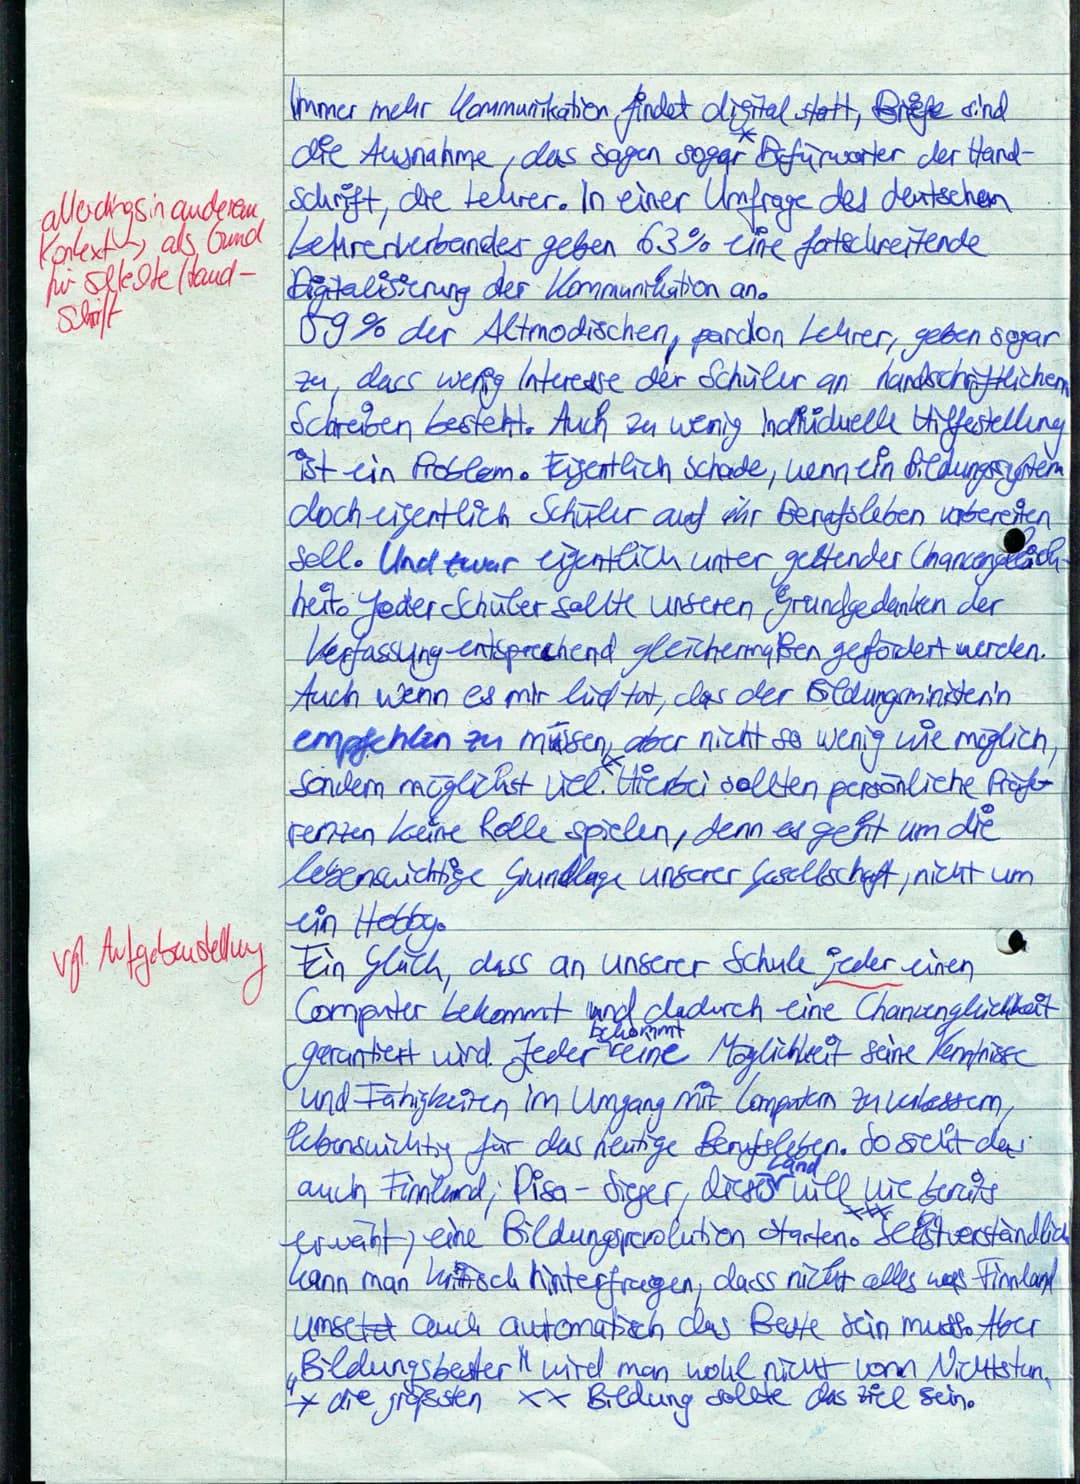 Immer mehr Kommunikation findet digital statt, Briefe sind
die Ausnahme, das sagen sogar * Befürworter der Hand-
schrift, die Lehrer. In einer Umfrage des deutschen
Lehrerverbandes geben 63% eine fortschreitende
Digitalisierung der Kommunikation an.
allerdings in anderem
Kontext als Grund
für schlechte Hand-
schrift
59% der Altmodischen, pardon Lehrer, geben sogar
zu, dass wenig Interesse der Schüler an handschriftlichem
Schreiben besteht. Auch zu wenig individuelle Hilfestellung
ist ein Problem. Eigentlich schade, wenn ein Bildungssystem
doch eigentlich Schüler auf ihr Berufsleben vorbereiten
soll. Und zwar eigentlich unter geltender Chancengleich-
heit. Jeder Schüler sollte unseren Grundgedanken der
Verfassung entsprechend gleichermaßen gefördert werden.
Auch wenn es mir leid tut, das der Bildungsministerin
empfehlen zu müssen, aber nicht so wenig wie möglich,
sondern möglichst viel. Hierbei sollten persönliche Präfe-
renzen keine Rolle spielen, denn es geht um die
lebenswichtige Grundlage unserer Gesellschaft, nicht um
ein Hobby.
vgl. Aufgabenstellung
Ein Glück, dass an unserer Schule jeder einen
Computer bekommt und dadurch eine Chancengleichheit
garantiert wird. Jeder bekommt eine Möglichkeit seine Kenntnisse
und Fähigkeiten im Umgang mit Computern zu verbessern,
lebenswichtig für das heutige Berufsleben. So sieht das
auch Finnland, Pisa-Sieger, dieses Land will wie bereits
erwäht, eine Bildungsrevolution starten. ** Selbstverständlich
kann man kritisch hinterfragen, dass nicht alles was Finnland
umsetzt auch automatisch das Beste sein muss. Aber
„Bildungsbester" wird man wohl nicht vom Nichtstun.
* die grössten ** Bildung sollte das Ziel sein.